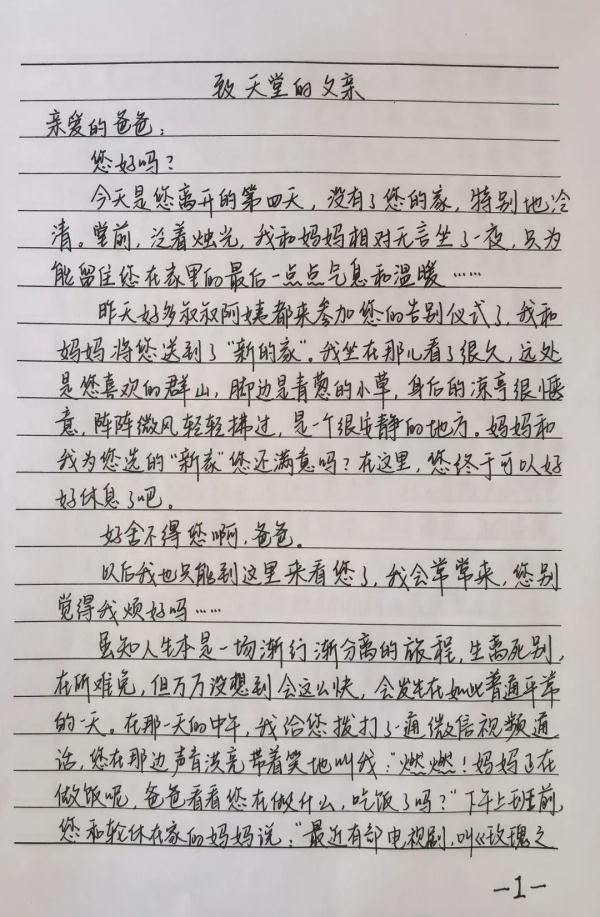 致天堂的父亲
亲爱的爸爸：
您好吗？
今天是您离开的第四天，没有了您的家，特别地冷
清。堂前，泛着烛光，我和妈妈相对无言坐了一夜，只为
能留住您在家里的最后一点点气息和温暖……
昨天好多叔叔阿姨都来参加您的告别仪式了，我和
妈妈将您送到了“新的家”。我坐在那儿看了很久，远处
是您喜欢的群山，脚边是青葱的小草，身后的凉亭很惬
意，阵阵微风轻轻拂过，是一个很安静的地方。妈妈和
我为您选的“新家”您还满意吗？在这里，您终于可以好
好休息了吧。
好舍不得您啊，爸爸。
以后我也只能到这里来看您了，我会常常来，您别
觉得我烦好吗……
虽知人生本是一场渐行渐分离的旅程，生离死别，
在所难免，但万万没想到会这么快，会发生在如此普通平常
的一天。在那一天的中午，我给您拨打了一通微信视频通
话，您在那边声音洪亮带着笑地叫我：“燃燃！妈妈正在
做饭呢，爸爸看看您在做什么，吃饭了吗？”下午上班前，
您和轮休在家的妈妈说：“最近有部电视剧，叫《玫瑰之
-1-